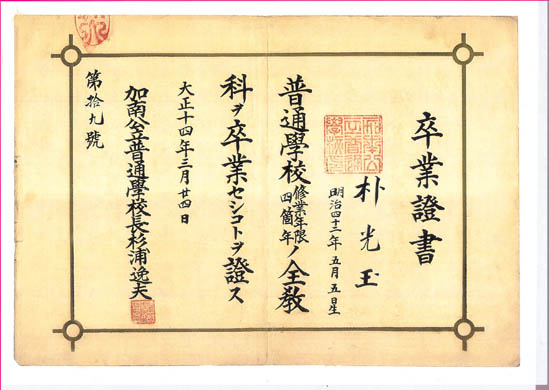 卒業證書
朴光玉
明治四十三年五月五日生
普通學校修業年限四箇年ノ全教
科ヲ卒業セシコトヲ證ス
大正十四年三月廿四日
加南公立普通學校長杉浦逸夫
第拾九號